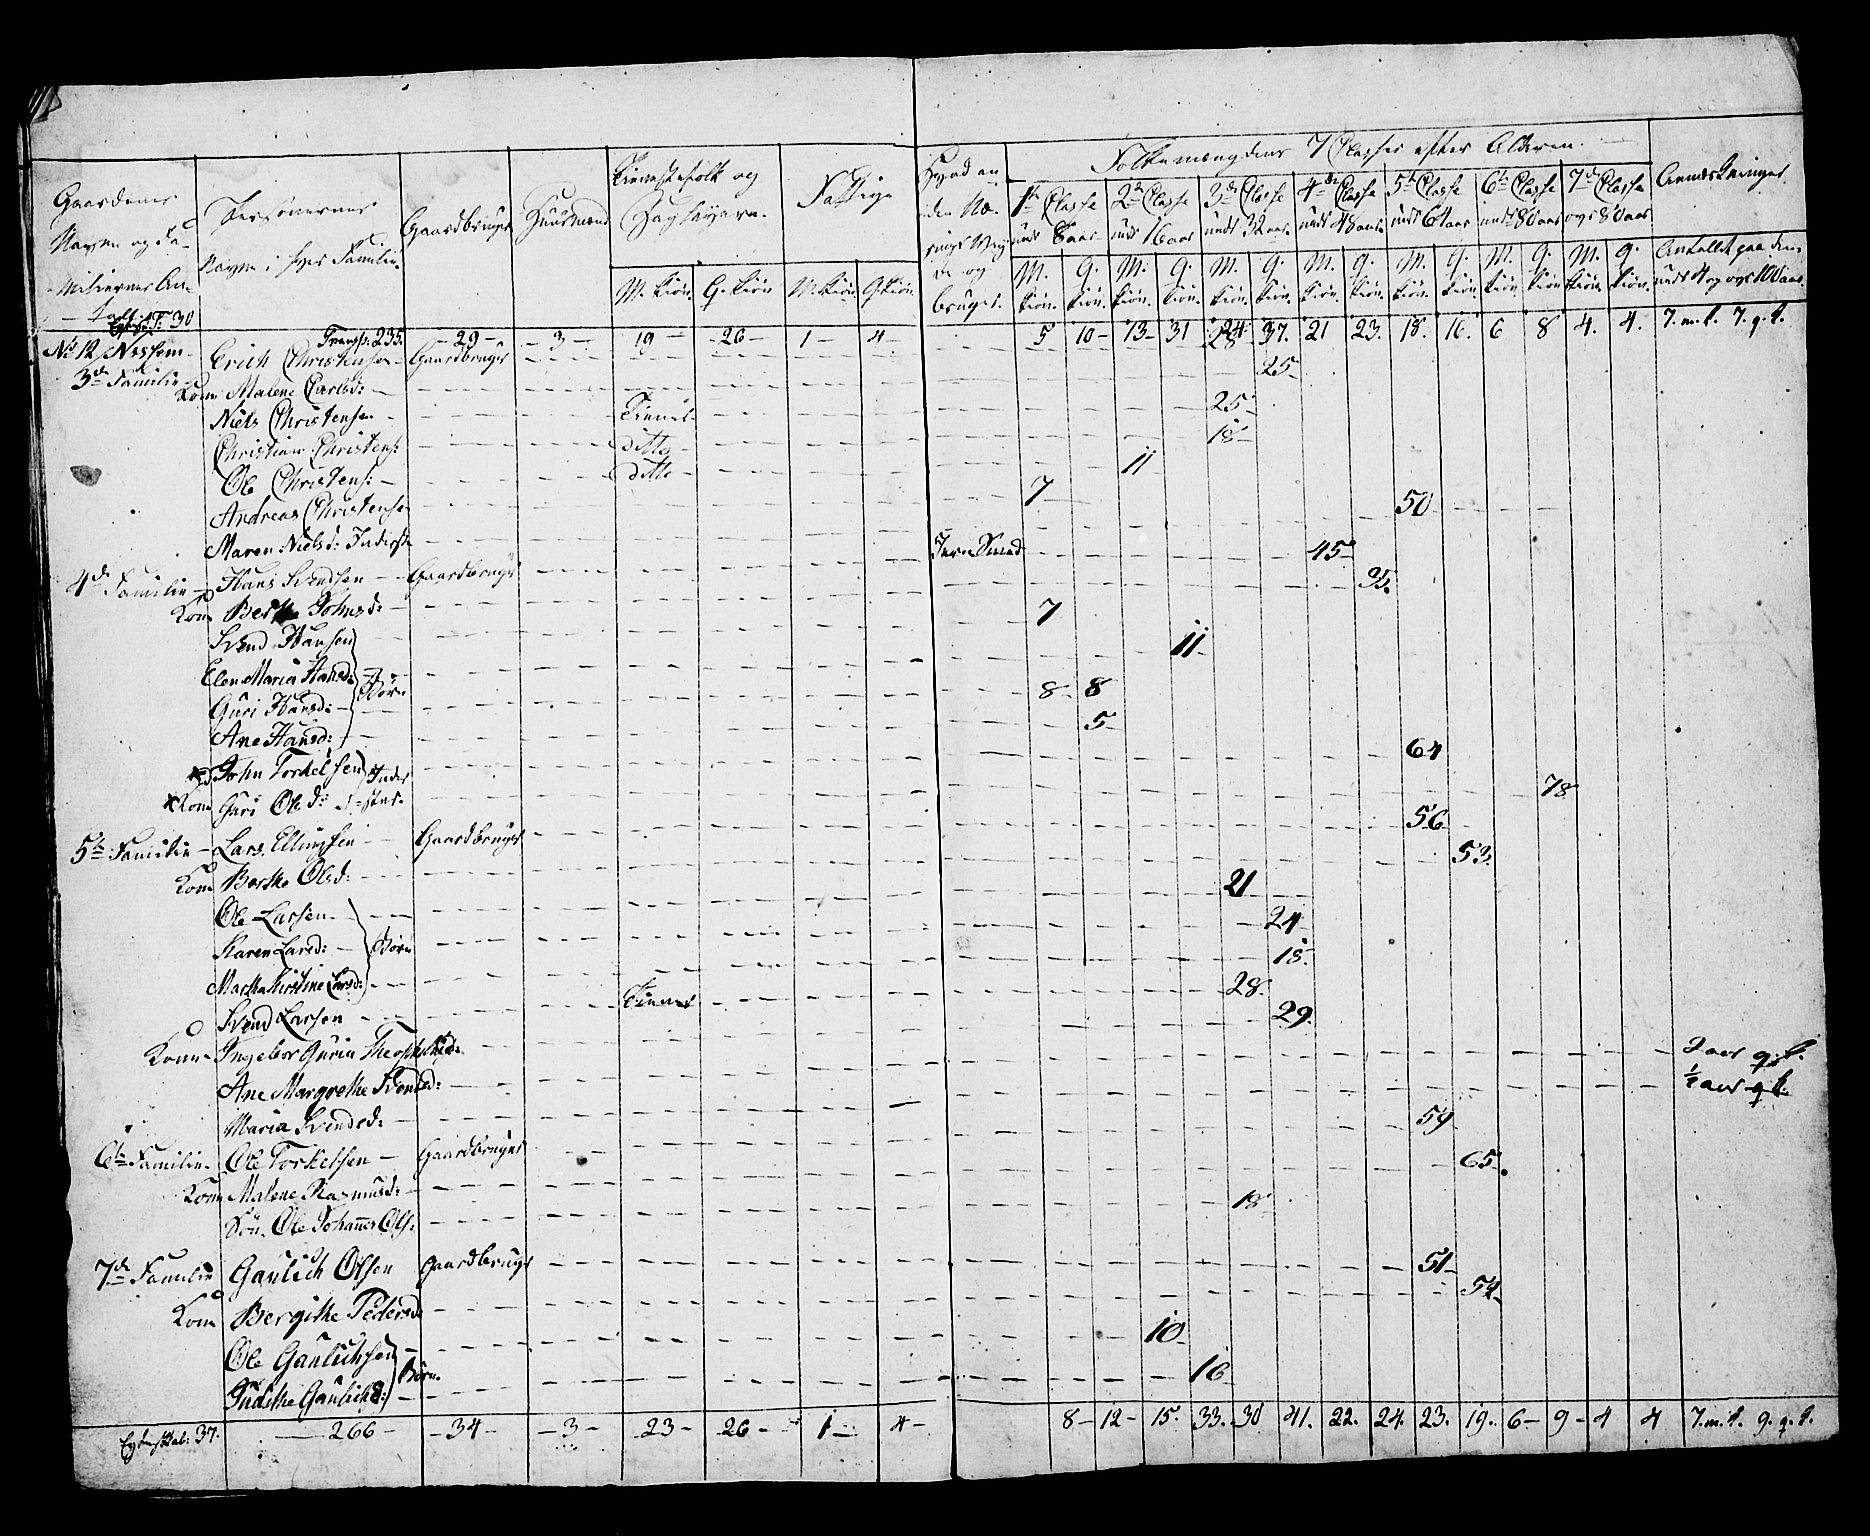 Gaardenes Navn og Familiernes Antall
Persoonernes Navne i hver Familie
Gaardbruger
Huusmænd
Tienestefolk og
M. Kiøn. Q. Kiøn
Fattige
M. Kiøn. Q. Kiøn
Folkemængdens 7 Classer efter Alderen.
1te Classe under 8 aar
2de Classe under 16 aar
3de Classe under 32 aar
4de Classe under 48 aar
5te Classe under 64 aar
6te Classe under 80 aar
7de Classe over 80 aar
M. Kiøn. Q. Kiøn. M. Kiøn. Q. Kiøn. M. Kiøn. Q. Kiøn. M. Kiøn. Q. Kiøn. M. Kiøn. Q. Kiøn. M. Kiøn. Q. Kiøn. M. Kiøn. Q. Kiøn.
Anmærkninger
Antallet paa dem under 4 og over 100 aar
30 Transp: 235. 29 3 19 26 1 4 5 10 13 31 24 37. 21 23. 18. 16. 6 8 4. 4. 7. m. k. 7. q. k.
No 12
3de Familie Erich Christensen Gaardbruger 28
Kone Malene Carlsd: 25
Niels Christensen Tiener 25
Christian Christens: ditto 18
Ole Christens: ditto 11
Andreas Christensen 7
Maren Nielsd: Inderste 50
4de Familie Hans Svendsen Gaardbruger Jern Smed 45
Kone Berthe Johnsd: 35.
Svend Hansen 7
Elen Maria Hansd: Børn 11
Guri Hansd: 8 8
Ane Hansd: 5
John Torkelsen Inderster 64
Kone Guri Olsd: 78
5te Familie Lars Ellingsen Gaardbruger 56
Kone Berthe Olsd: 53.
Ole Larsen 21
Karen Larsd: Børn 24
Martha Kirstine Larsd: 18.
Svend Larsen Tiener 28.
Kone Ingebor Guria 29.
Ane Margrethe Svendsd: aar q. k.
Maria Svendsd: 1/2 aar q. k.
6te Familie Ole Torkelsen Gaardbruger 59
Kone Malene Rasmusd: 65.
Søn. Ole Johannes Ols: 18
7de Familie Gaulich Olsen Gaardbruger 51
Kone Bergithe Pedersd 54
Ole Gaulichsen Børn 10
Judithe Gaulichsd: 16
37. 266 34 3 23 26 1 4 8 12 15. 33. 30 41. 22. 24. 23. 19. 6 9 4 4 7. m. k. 9. q. k.